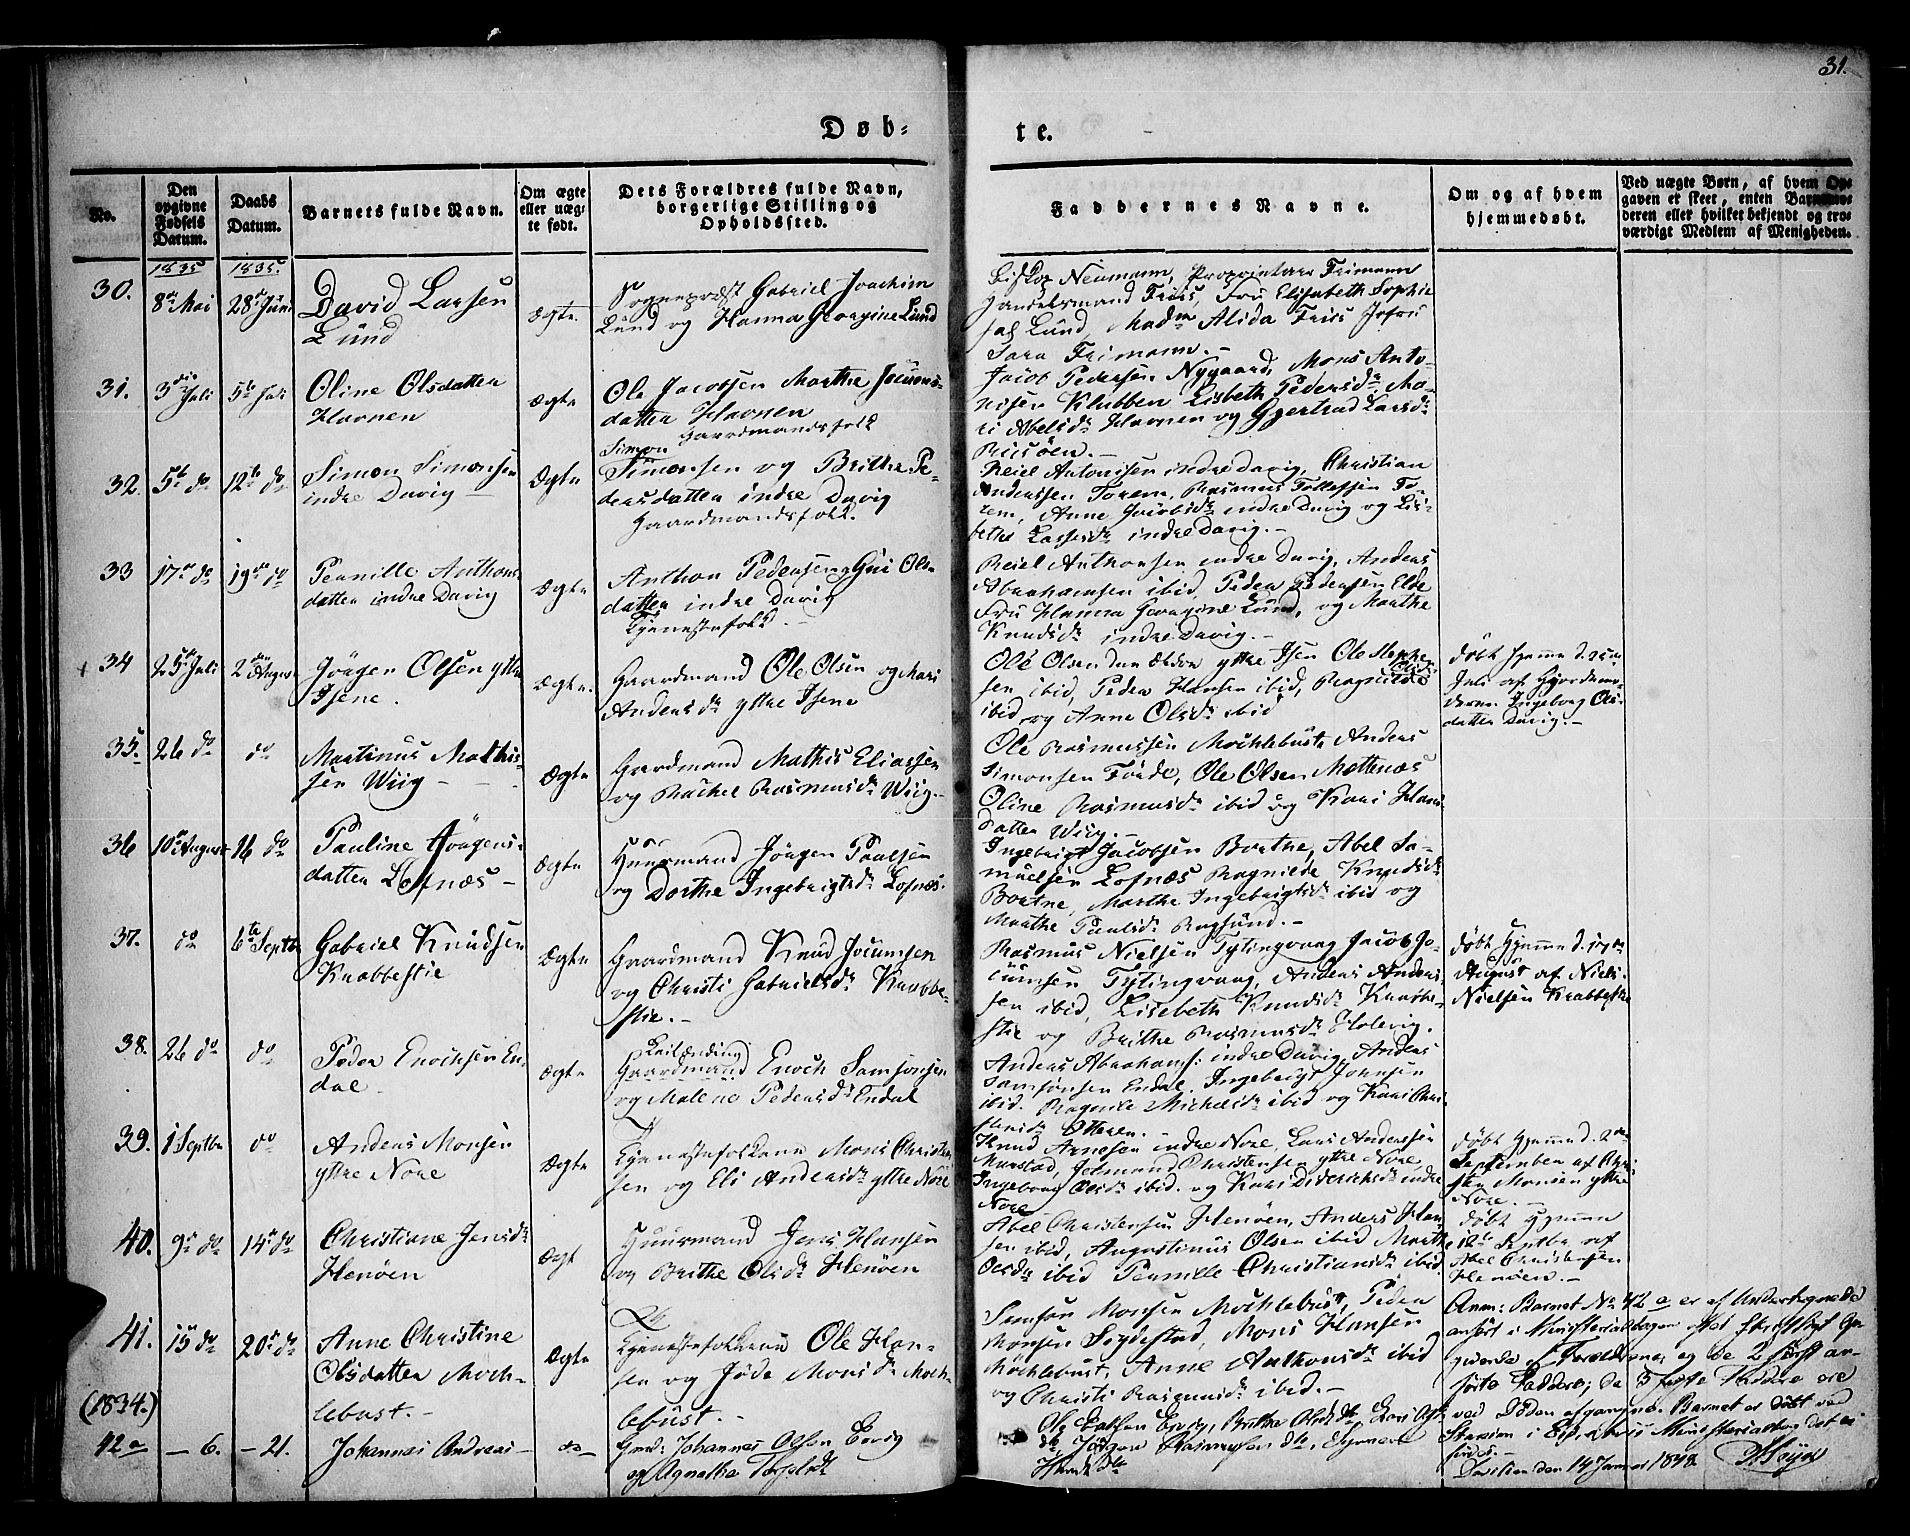 31.
Døb-
te.
No.
Den opgivne Fødsels Datum.
Daabs Datum.
Barnets fulde Navn.
Om ægte eller uægte født.
Dets Forældres fulde Navn, borgerlige Stilling og Opholdssted.
Faddernes Navne.
Om og af hvem hjemmedøbt.
Ved uægte Børn, af hvem Opgaven er skeet, enten Barnemoderen eller hvilket bekjendt og troværdigt Medlem af Menigheden.
1835 1835
30. 8de Mai 28de Juni
David Larsen
Lund
ægte
Sognepræst Gabriel Joachim
Lund og Hanna Georgine Lund
Biskop Neumann, Proprietær Frimann
Handelsmand Friis, Fru Elisabeth Sophie
Lund, Madm Alida Friis Jofru
Sara Frimann.-
31. 3die Juli 5te Juli
Oline Olsdatter
Havnen
ægte
Ole Jacobsen Marthe Jocums-
datter Havnen
Gaardmandsfolk
Jacob Pedersen Nygaard, Mons Anto-
nisen Klubben Lisbeth Pedersdr Ma-
ri Abelsdr Havnen og Gjertrud Larsdr
Riisöen.-
32. 5te do 12te do
Simon Simonsen
indre Davig
Ægte
Simon
Simonsen og Brithe Pe-
dersdatter indre Davig
Gaardmandsfolk.
Reiel Antonisen indre Davig, Christian
Anderssen Torem, Rasmus Tollefsen To-
rem, Anne Jacobsdr indre Davig og Lis-
bethe Lassesdr indre Davig.-
33 17de do 19de do
Pernille Anthons-
datter indre Davig
Ægte
Anthon Pedersen og Gui Ols-
datter indre Davig
Tjenestefolk.-
Reiel Anthonsen indre Davig, Anders
Abrahamsen ibid, Peder Pedersen Elde
Fru Hanna Georgine Lund, og Marthe
Knudsdr indre Davig.-
34 25de Juli 2den August
Jörgen Olsen ytre
Isene.
Ægte.
Gaardmand Ole Olsen og Mari
Andersdr ytre Isene
Ole Olsen den ældre ytre Isen Ole Steph-
sen ibid, Peder Hansen ibid, Ragnilde Olsdr
ibid og Anne Olsdr ibid
döbt hjemme d. 25de
Juli af Gjordemo-
deren Ingeborg Ols-
datter Davig.-
35. 26 do do
Martinus Mathis-
sen Wiig -
Ægte
Gaardmand Mathis Eliassen
og Rachel Rasmusdr Wiig.-
Ole Rasmussen Mochlebust, Anders
Simonsen Förde, Ole Olsen Mettenæs
Oline Rasmusdr ibid og Kari Hans-
datter Wiig.-
36 10de August 16 do
Pauline Jörgens-
datter Lofnæs -
Ægte
Huusmand Jörgen Paulsen
og Dorthe Ingebrigtsdr Lofnæs.
Ingebrigt Jacobsen Bortne, Abel Sa-
muelsen Lofnæs Ragnilde Knudsdr
Bortne, Marthe Ingebrigtsdr ibid og
Marthe Paulsdr Rugsund.-
37. do 6te Septbr
Gabriel Knudsen
Knabbestie
Ægte
Gaardmand Knud Jocumsen
og Christi Gabrielsdr Knabbe-
stie.-
Rasmus Nielsen Tytingvaag Jacob Jo-
cumsen Tytingvaag, Anders Anders-
sen ibid, Lisebeth Knudsdr Knabbe-
stie og Brithe Rasmusdr Holevig.
döbt hjemme d. 17de
August af Niels
Nielsen Knabbestie
38. 26 do do
Peder Enochsen En-
dal -
ægte
Leilænding
Gaardmand Enoch Samsonsen
og Malene Pedersdr Endal
Anders Abrahams: indre Davig, Anders
Samsonsen Endal, Ingebrigt Johnsen
ibid. Ragnile Michelsdr ibid og Kari Chri-
stensdr Otteren.-
39. 1 Septbr do
Anders Monsen
ytre Nore
Ægte
Tjenestefolkene Mons Christen-
sen og Eli Andersdr ytre Nore
Knud Arnesen indre Nore, Lars Anderssen
Murstad, Jetmund Christensen ytre Nore,
Ingeborg Olsdr ibid. og Kari Diderichsdr indre
Nore
döbt hjemme d. 2den
September af Chri-
sten Monsen ytre
Nore.-
40. 9de do 14de do
Christiane Jensdr
Henöen
Ægt
Huusmand Jens Hansen
og Brithe Olsdr Henöen
Abel Christensen Henöen, Anders Han-
sen ibid, Augustinus Olsen ibid Marthe
Olsdr ibid Pernille Christiansdr ibid
döbt hjemme
12te Septbr af
Abel Christensen
Henöen.-
41. 15 do 20de do
Anne Christine
Olsdatter Moch-
lebust.-
Ægte
Tjenestefolkene Ole Han-
sen og Jöde Monsdr Moch-
lebust.-
Samson Monsen Mochlebust, Peder
Monsen Leydestad, Mons Hansen
Möchlebust, Anne Anthonsdr ibid
og Christi Rasmusdr ibid.-
(1834.)
42a - 6. - 21.
Johannes Andreas -
do -
Gmd: Johannes Olsen Eevig
og Agnethe
Jörgen Rasmussen do,
Anm: Barnet No 42 a er af Undertegnede
anfört i Ministerialbogen efter
Forældrene, og de 2 först an-
förte Faddere; da 3 Faddere ere
ved Döden afgangne. Barnet er döbt ved
Davigen den 14 Januar 1848.